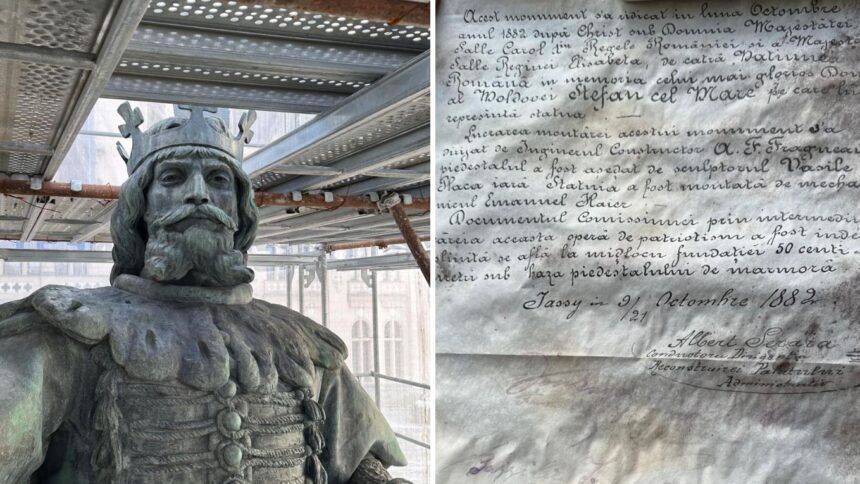 Acest monument s'a ridicat in luna Octombre
anul 1882 după Christ sub Domnia Majestăței
Salle Carol Regele României si a Majestă
Salle Reginei Elisabeta, de catră Natiunea
Română in memoria celui mai glorios Dom
al Moldovei Stefan cel Mare pe care lu
represintă statua.
Lucrarea montărei acestui monument s'a
de Inginerul Constructor A. F. Fragnea
piedestalul a fost asedat de sculptorul Vasile
iară Statuia a fost montată de mecha
nicul Emanuel Haier.
Documentul Comissiunei prin intermediu
căreia aceasta operă de patriotism a fost inde
plinită se află la midlocu fundatiei 50 centi
metri sub baza piedestalului de marmoră
Jassy in 9/21 Octombre 1882.
Albert
Conductoru Dirigente
Reconstrucei Palatului
Administrativ